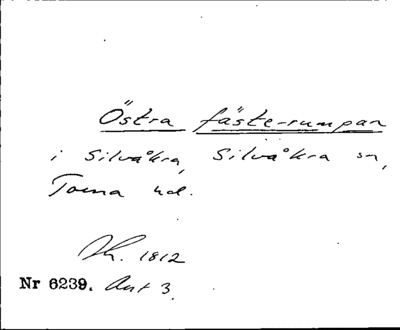 Östra fäste-rumpan
i Silvåkra, Silvåkra sn,
Torna hd.
Sk. 1812
Nr 6239. Avt 3.